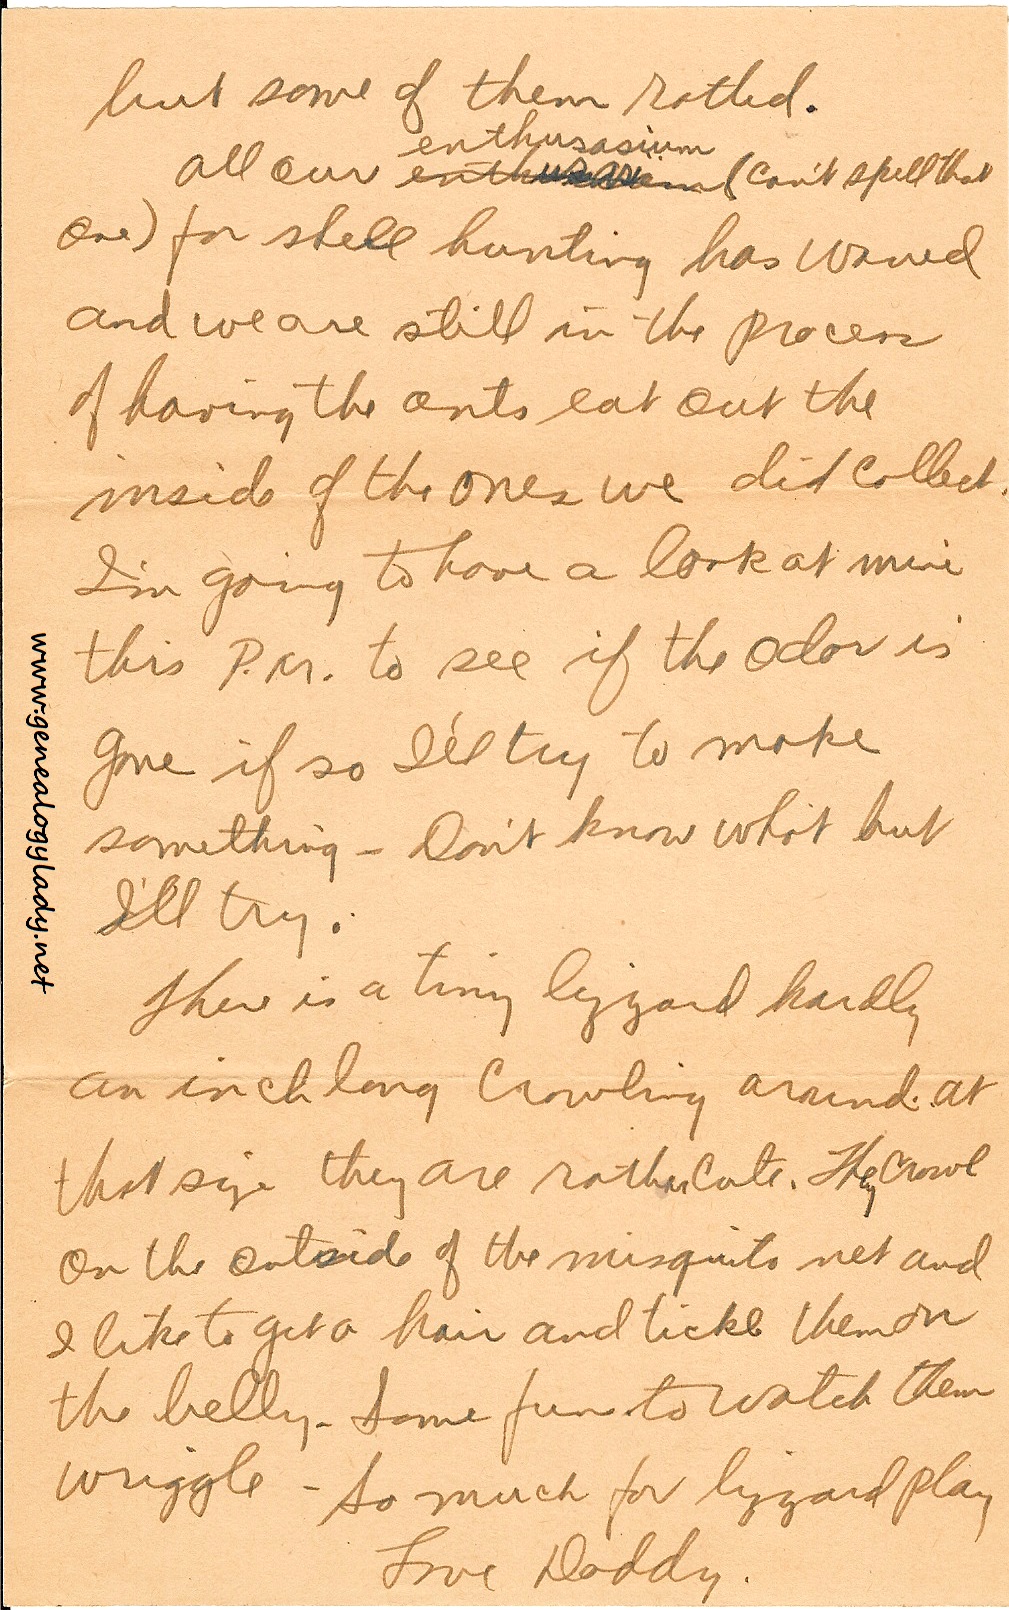 but some of them rotted.
enthusasium
all our enthusasium (can't spell that
one) for shell hunting has waned
and we are still in the process
of having the ants eat out the
inside of the ones we did collect.
I'm going to have a look at mine
this P.M. to see if the odor is
gone if so I'll try to make
something - Don't know what but
I'll try.
There is a tiny lizzard hardly
an inch long crawling around. at
that size they are rather cute. They crawl
on the outside of the misquito net and
I like to get a hair and tickle them on
the belly - Some fun to watch them
wriggle - So much for lizzard play
Love Daddy.
www.genealogylady.net